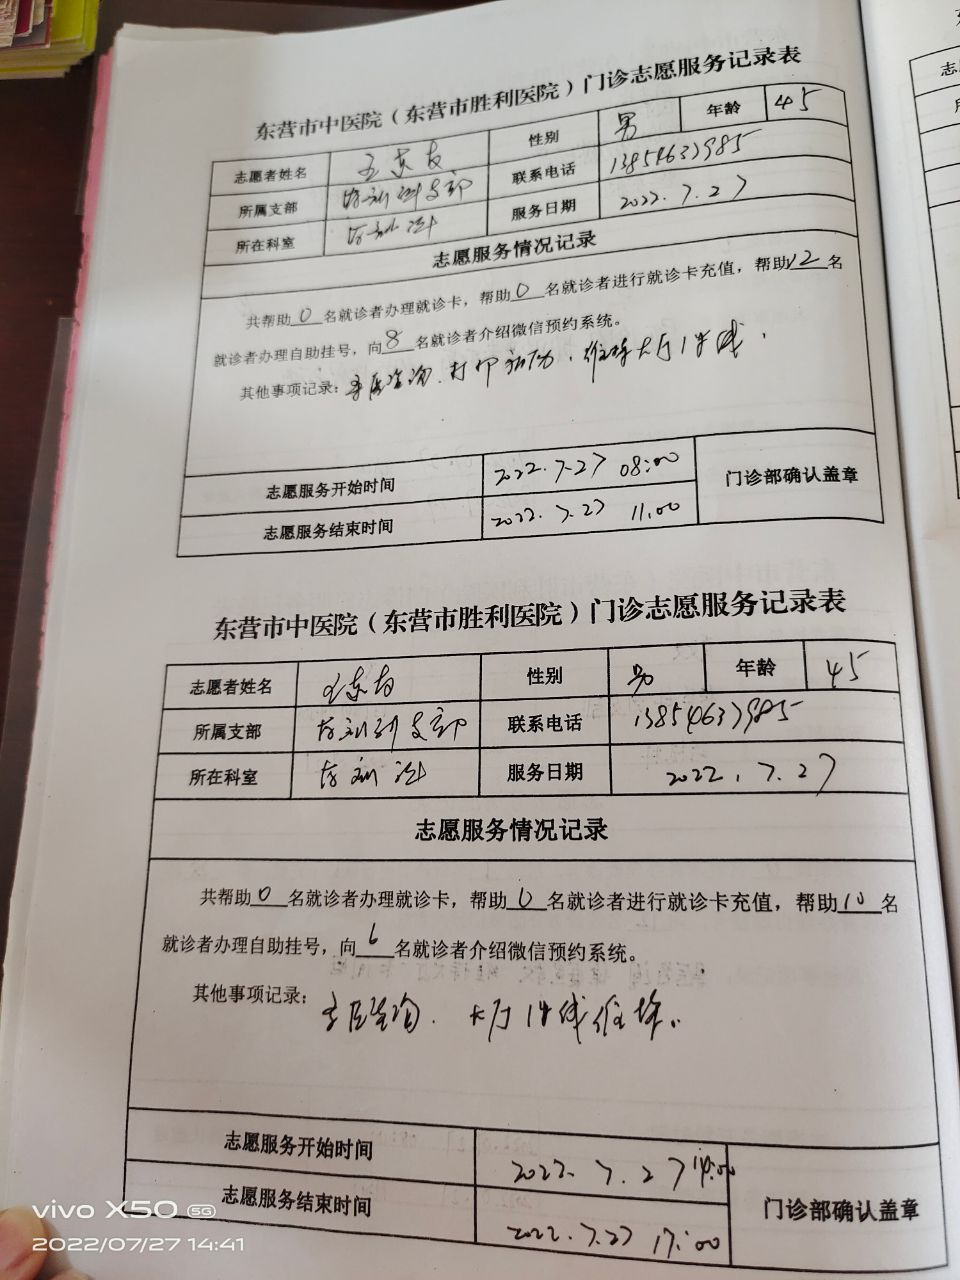 东营市中医院（东营市胜利医院）门诊志愿服务记录表
志愿者姓名 性别 男 年龄 45
所属支部 支部 联系电话 13854637985
所在科室 服务日期 2022.7.27
志愿服务情况记录
共帮助0名就诊者办理就诊卡，帮助0名就诊者进行就诊卡充值，帮助12名
就诊者办理自助挂号，向8名就诊者介绍微信预约系统。
其他事项记录：导医咨询、打印 、维持大厅
志愿服务开始时间 2022.7.27 08:00 门诊部确认盖章
志愿服务结束时间 2022.7.27 11:00
东营市中医院（东营市胜利医院）门诊志愿服务记录表
志愿者姓名 性别 男 年龄 45
所属支部 支部 联系电话 13854637985
所在科室 服务日期 2022.7.27
志愿服务情况记录
共帮助0名就诊者办理就诊卡，帮助0名就诊者进行就诊卡充值，帮助10名
就诊者办理自助挂号，向6名就诊者介绍微信预约系统。
其他事项记录：导医咨询、大厅 维持。
志愿服务开始时间 2022.7.27 14:00 门诊部确认盖章
志愿服务结束时间 2022.7.27 17:00
vivo X50 5G
2022/07/27 14:41